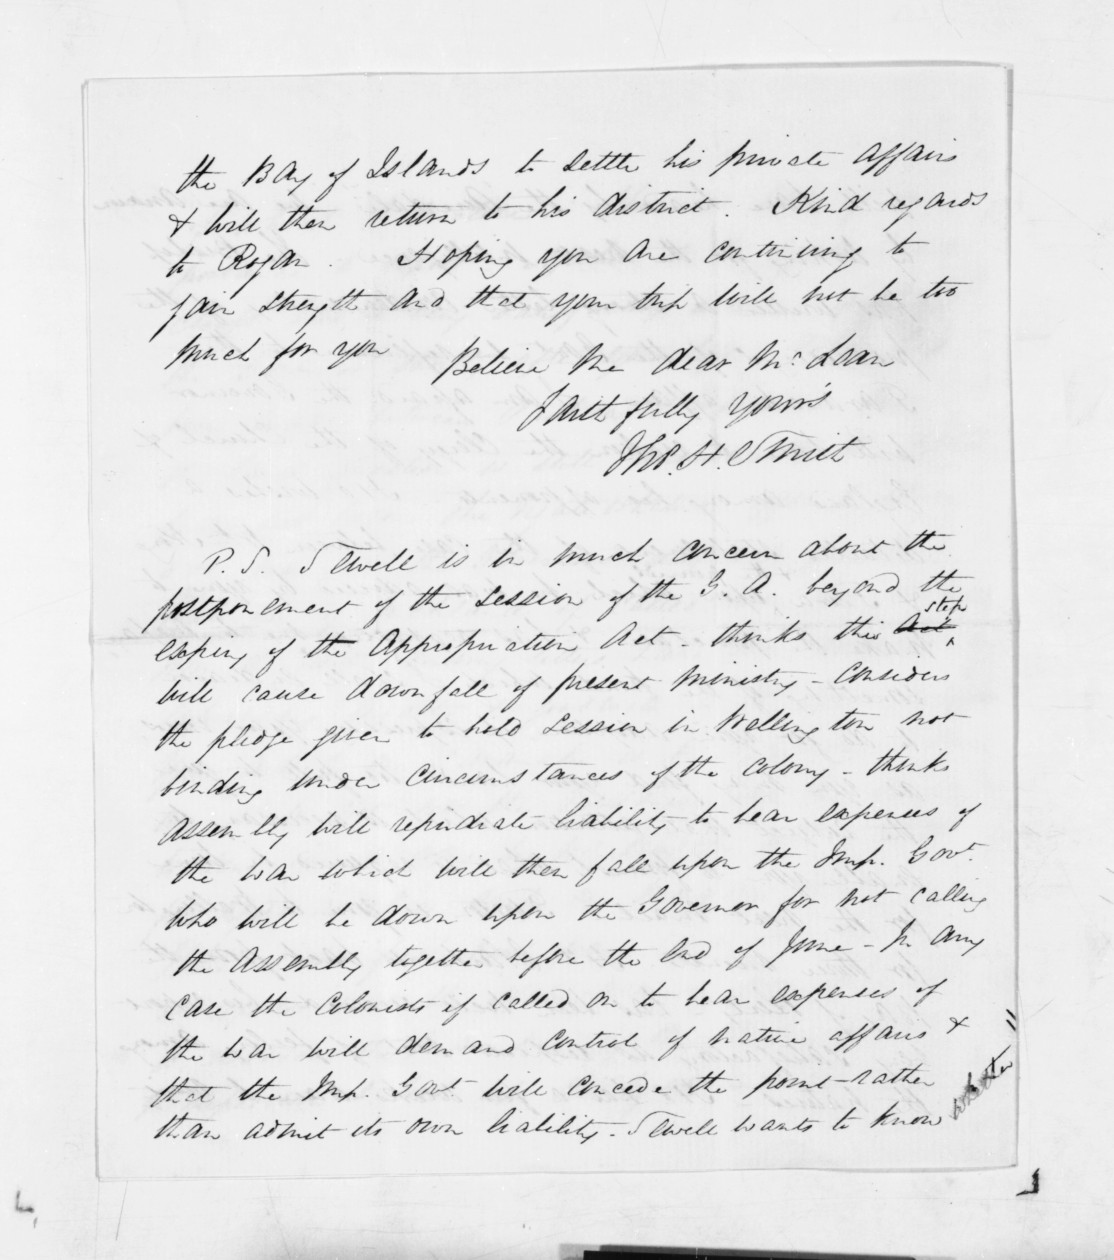 the Bay of Islands to settle his private affairs
& will then return to his district. Kind regards
to Rogan. Hoping you are continuing to
gain strength and that your trip will not be too
much for you Believe me dear McLean
Faithfully Yours
Tho. H. Smith
P.S. Sewell is in much concern about the
postponement of the Session of the G. A. beyond the
expiry of the Appropriation Act - thinks this stop
will cause downfall of present ministry - considers
the pledge given to hold Session in Wellington not
binding under circumstances of the colony - thinks
Assembly will repudiate liability to bear expenses of
the war which will then fall upon the Imp. Govt.
who will be down upon the Governor for not calling
the Assembly together before the end of June - In any
case the Colonists if called on to bear expenses of
the war will demand control of native affairs &
that the Imp. Govt. will concede the point rather
than admit its own liability - Sewell wants to know whether